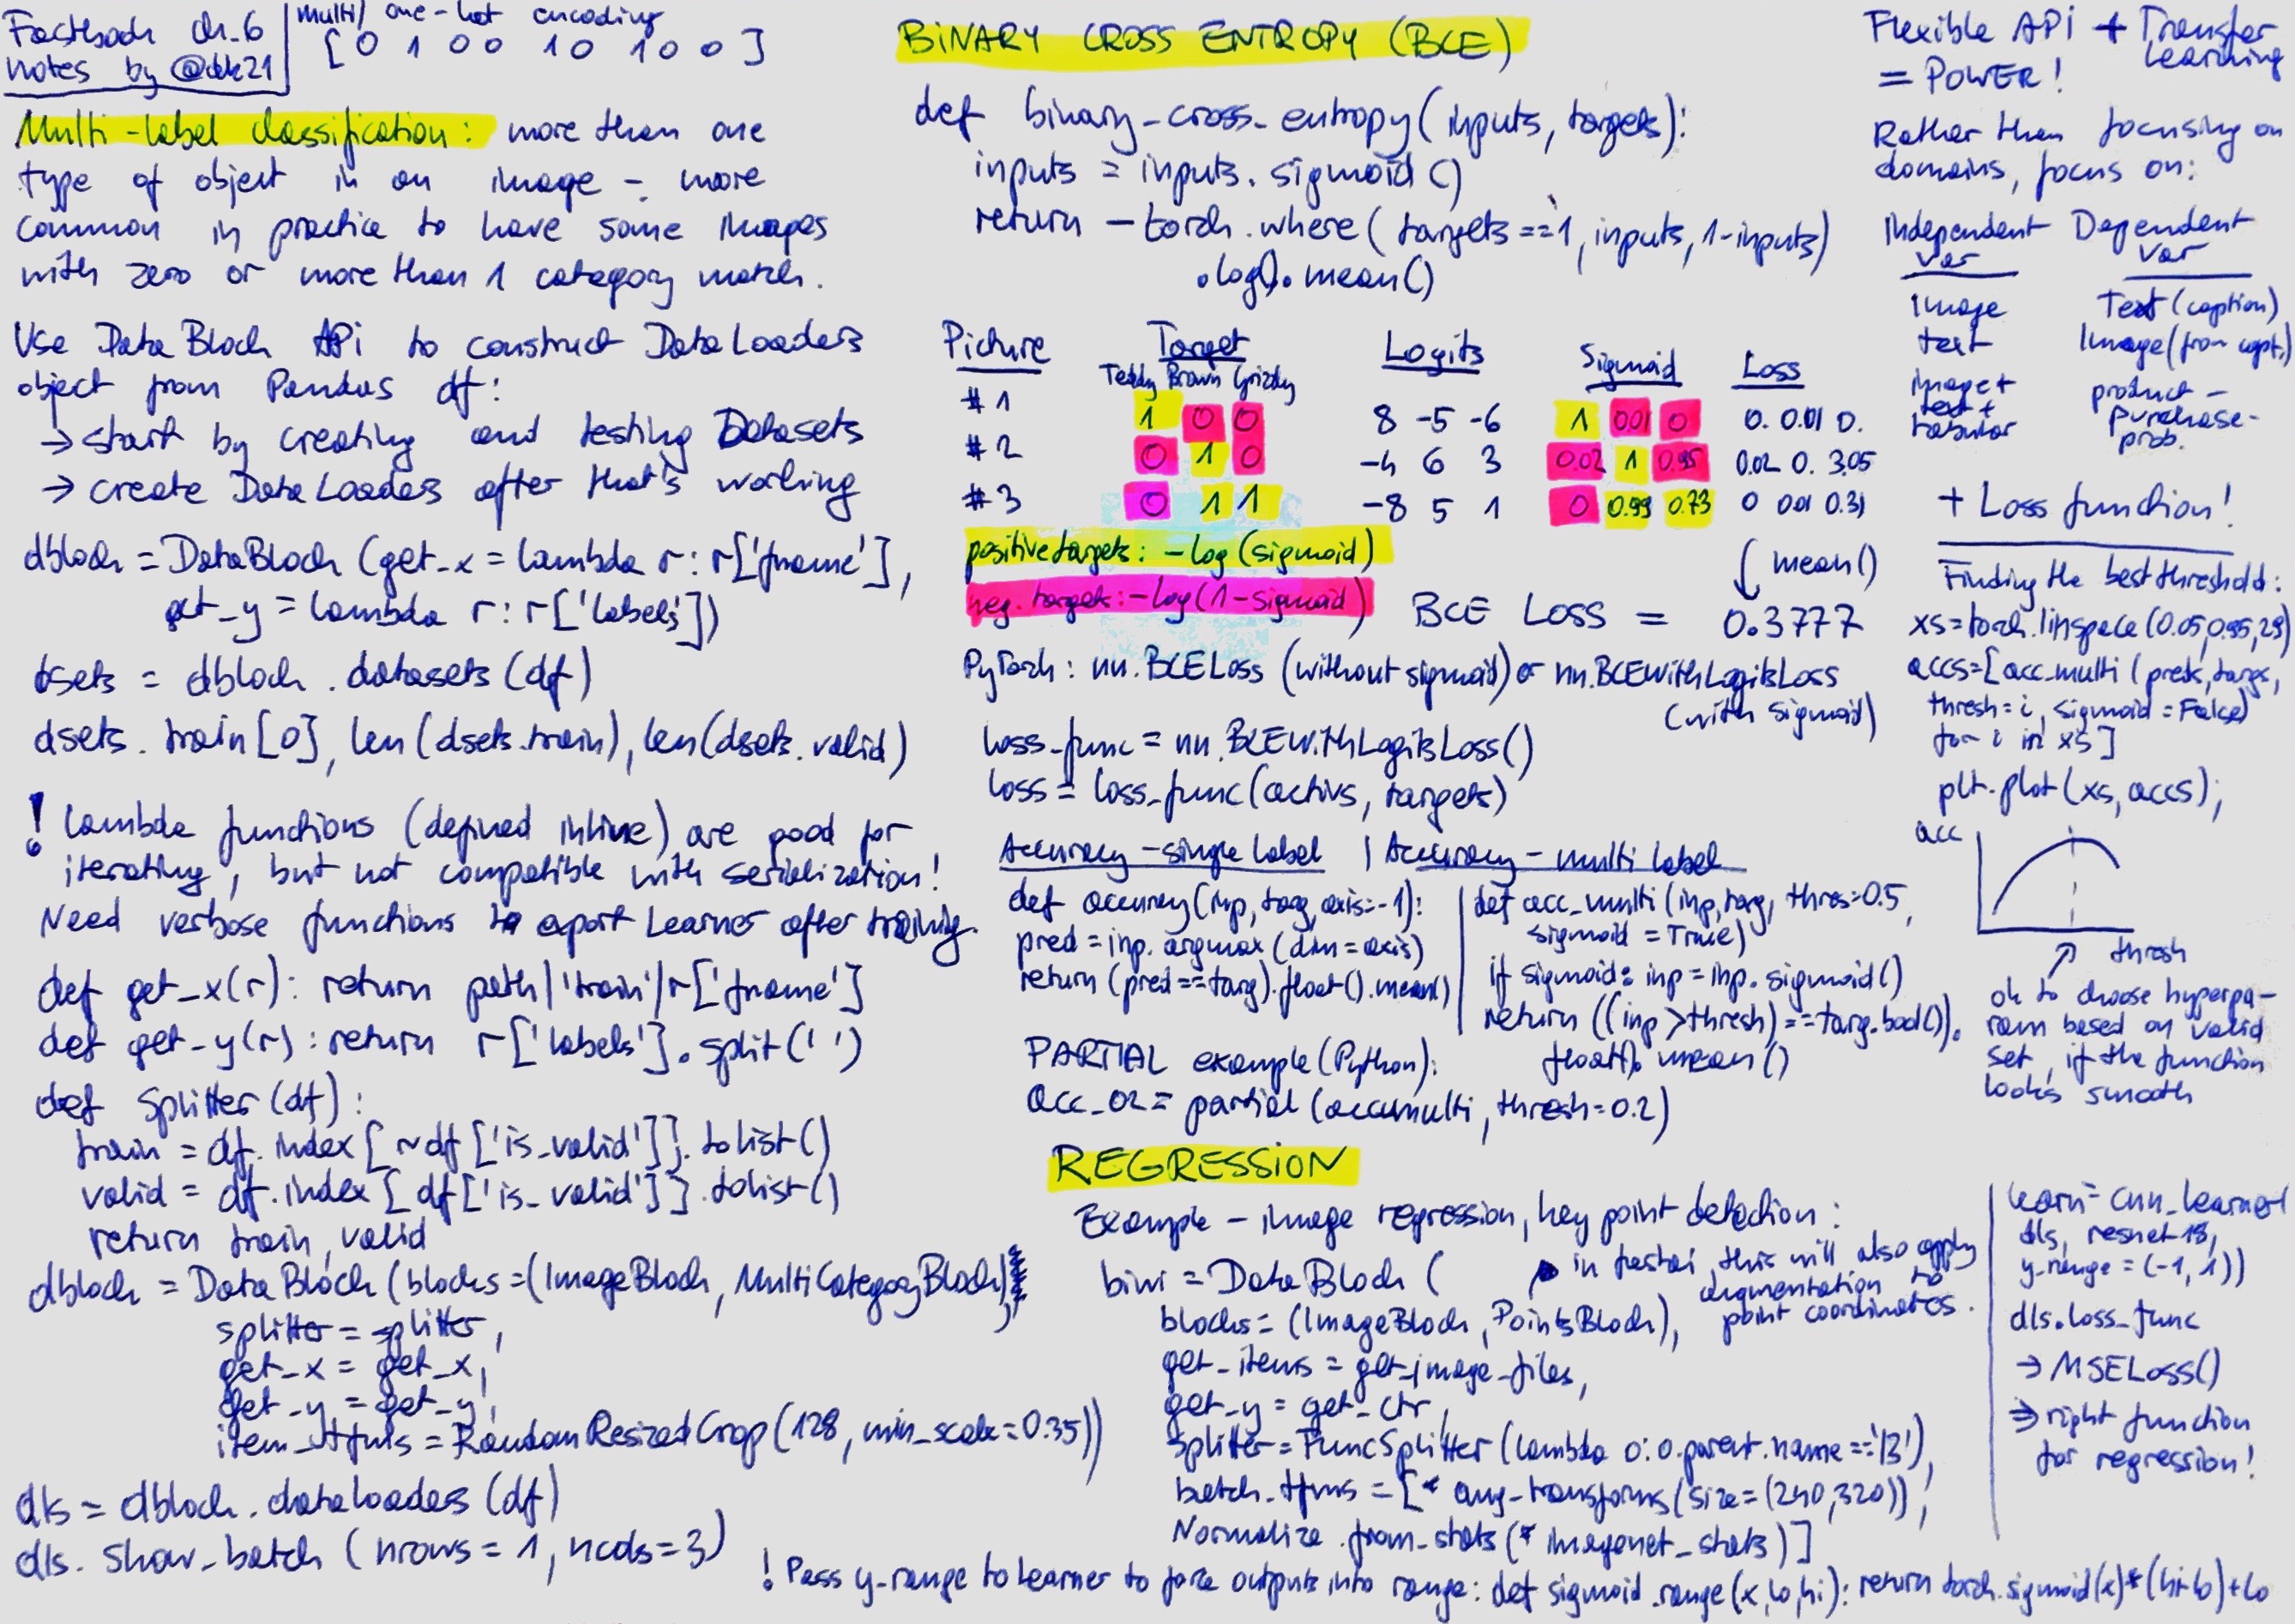 Fastbook ch. 6
notes by @dk21
multi/ one-hot encoding
[ 0 1 0 0 1 0 1 0 0 ]
Multi-label classification: more than one
type of object in an image - more
common in practice to have some images
with zero or more than 1 category match.
Use DataBlock API to construct DataLoaders
object from Pandas df:
→ start by creating and testing Datasets
→ create DataLoaders after that's working
dblock = DataBlock (get_x = lambda r: r['fname'],
get_y = lambda r: r['labels'])
dsets = dblock.datasets (df)
dsets.train[0], len(dsets.train), len(dsets.valid)
! lambda functions (defined inline) are good for
iterating, but not compatible with serialization!
Need verbose functions to export Learner after training.
def get_x(r): return path/'train'/r['fname']
def get_y(r): return r['labels'].split(' ')
def splitter (df):
train = df.index[~df['is_valid']].tolist()
valid = df.index[df['is_valid']].tolist()
return train, valid
dblock = DataBlock (blocks=(ImageBlock, MultiCategoryBlock),
splitter = splitter,
get_x = get_x,
get_y = get_y,
item_tfms = RandomResizedCrop(128, min_scale=0.35))
dls = dblock.dataloaders (df)
dls.show_batch (nrows = 1, ncols=3)
BINARY CROSS ENTROPY (BCE)
def binary_cross_entropy(inputs, targets):
inputs = inputs.sigmoid()
return -torch.where(targets==1, inputs, 1-inputs)
.log().mean()
Picture Target Logits Sigmoid Loss
Teddy Brown Grizzly
#1 1 0 0 8 -5 -6 1 0.01 0 0. 0.01 0.
#2 0 1 0 -4 6 3 0.02 1 0.95 0.02 0. 3.05
#3 0 1 1 -8 5 1 0 0.99 0.73 0 0.01 0.31
positive targets: -log(sigmoid)
neg. targets: -log(1-sigmoid)
mean()
BCE LOSS = 0.3777
PyTorch: nn.BCELoss (without sigmoid) or nn.BCEWithLogitsLoss
(with sigmoid)
loss_func = nn.BCEWithLogitsLoss()
loss = loss_func(activs, targets)
Accuracy - single label | Accuracy - multi label
def accuracy(inp, targ, axis=-1):
pred = inp.argmax(dim=axis)
return (pred==targ).float().mean()
def acc_multi (inp, targ, thres=0.5,
sigmoid = True)
if sigmoid: inp = inp.sigmoid()
return ((inp>thresh)==targ.bool()).
float().mean()
PARTIAL example (Python):
acc_02 = partial (accumulti, thresh=0.2)
REGRESSION
Example - image regression, key point detection:
biwi = DataBlock (
in fastai, this will also apply
augmentation to
point coordinates.
blocks = (ImageBlock, PointsBlock),
get_items = get_image_files,
get_y = get_ctr,
splitter = FuncSplitter (lambda o: o.parent.name=='13'),
batch_tfms = [* aug_transforms(size=(240,320)),
Normalize.from_stats(*imagenet_stats)]
! Pass y_range to Learner to force outputs into range: def sigmoid_range(x,lo,hi): return torch.sigmoid(x)*(hi-lo)+lo
Flexible API + Transfer
Learning
= POWER!
Rather than focusing on
domains, focus on:
Independent Dependent
var var
Image Text (caption)
text Image (from capt.)
image+ product-
text+ purchase-
tabular prob.
+ Loss function!
Finding the best threshold:
xs=torch.linspace(0.05,0.95,29)
accs=[acc_multi (preds, targs,
thresh=i, sigmoid=False)
for i in xs]
plt.plot(xs, accs);
acc
thresh
ok to choose hyperpa-
ram based on valid
set, if the function
looks smooth
learn = cnn_learner(
dls, resnet18,
y_range = (-1, 1))
dls.loss_func
→ MSELoss()
⇒ right function
for regression!